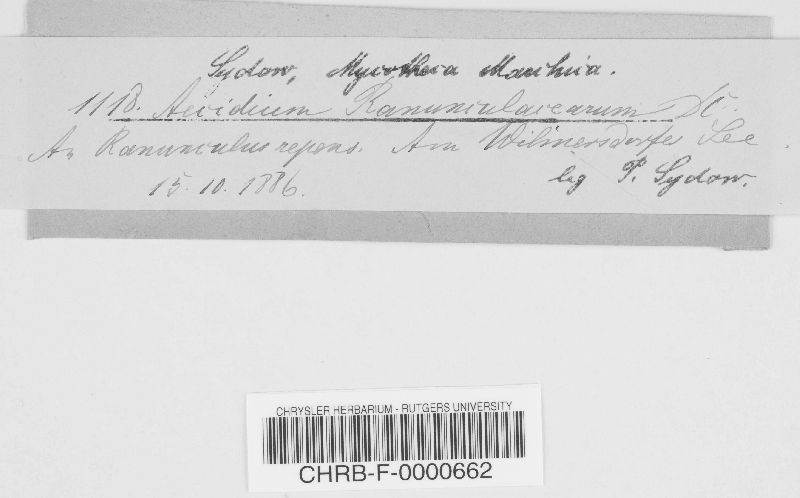 Sydow, Mycotheca Marchica.
1118. Aecidium Ranunculacearum DC.
An Ranunculus repens. Am Wilmersdorfer See.
15.10.1886.
leg P. Sydow.
CHRYSLER HERBARIUM - RUTGERS UNIVERSITY
CHRB-F-0000662